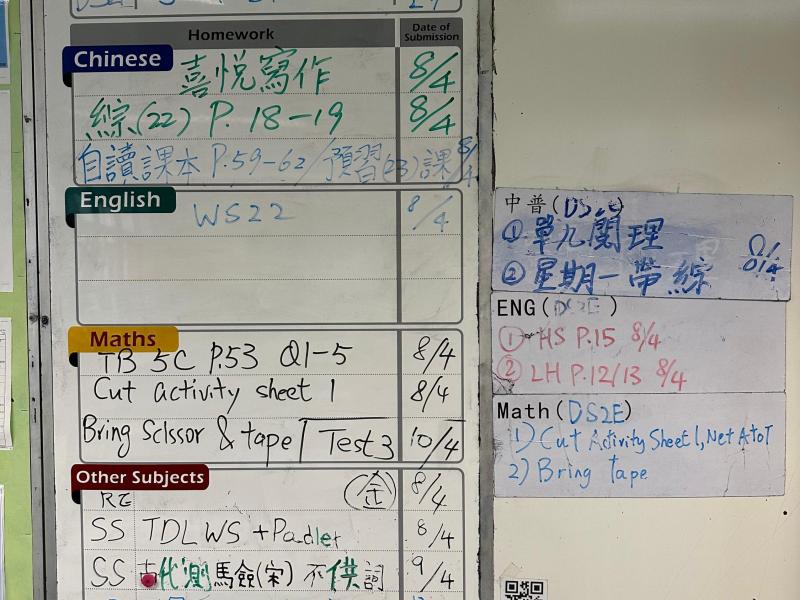 Homework
Date of Submission
Chinese
喜悅寫作 8/4
綜(22) P. 18-19 8/4
自讀課本 P.59-62/預習(23)課 8/4
English
WS22 8/4
Maths
TB 5C P.53 Q1-5 8/4
Cut activity sheet 1 8/4
Bring Scissor & tape Test 3 10/4
Other Subjects
RE (金) 8/4
SS TDLWS + Padlet 8/4
SS 古代測馬 (宋) 9/4
中普(DS2E)
① 單九閱理
② 星期一帶綜
ENG(DS2E)
① HS P.15 8/4
② LH P.12/13 8/4
Math(DS2E)
1) Cut Activity Sheet 1, Net A to T
2) Bring tape